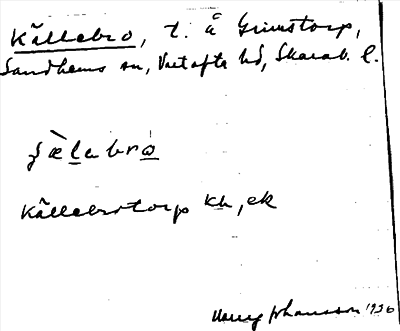 Källebro, t. å Grimstorp,
Sandhems sn, Vartofta hd, Skarab. l.
Källebrotorp kh, ek
Johansson 1936